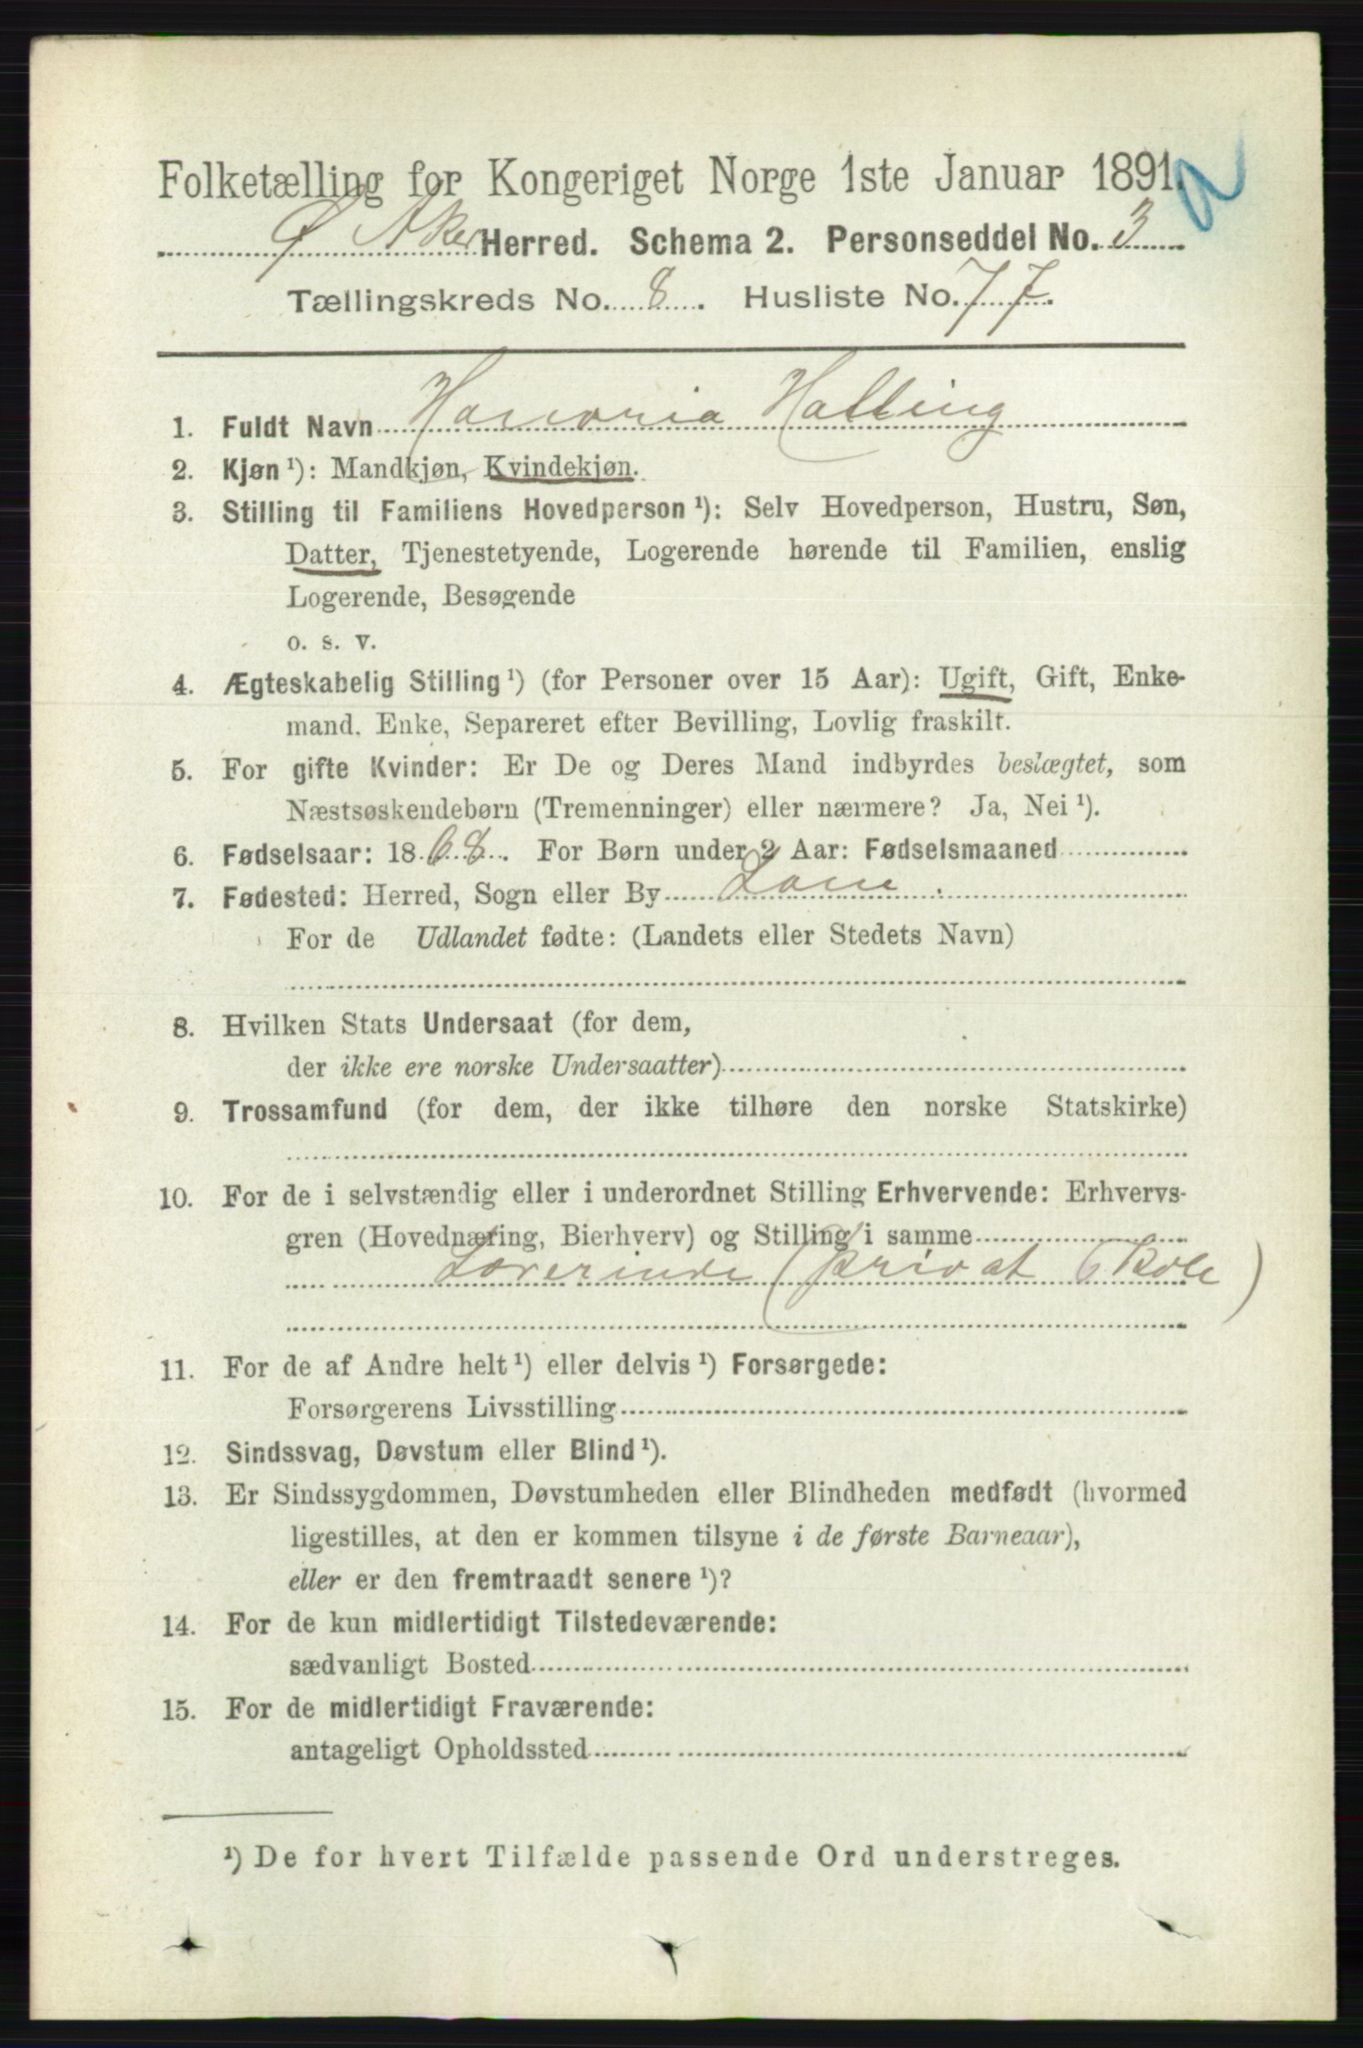 Folketælling for Kongeriget Norge 1ste Januar 1891.
a
Ø Aker Herred. Schema 2. Personseddel No. 3
Tællingskreds No. 8. Husliste No. 77.
1. Fuldt Navn Halling
2. Kjøn ¹): Mandkjøn, Kvindekjøn.
3. Stilling til Familiens Hovedperson ¹): Selv Hovedperson, Hustru, Søn,
Datter, Tjenestetyende, Logerende hørende til Familien, enslig
Logerende, Besøgende
o. s. v.
4. Ægteskabelig Stilling ¹) (for Personer over 15 Aar): Ugift, Gift, Enke-
mand, Enke, Separeret efter Bevilling, Lovlig fraskilt.
5. For gifte Kvinder: Er De og Deres Mand indbyrdes beslægtet, som
Næstsøskendebørn (Tremenninger) eller nærmere? Ja, Nei ¹).
6. Fødselsaar: 1868. For Børn under 2 Aar: Fødselsmaaned
7. Fødested: Herred, Sogn eller By Lom.
For de Udlandet fødte: (Landets eller Stedets Navn)
8. Hvilken Stats Undersaat (for dem,
der ikke ere norske Undersaatter)
9. Trossamfund (for dem, der ikke tilhøre den norske Statskirke)
10. For de i selvstændig eller i underordnet Stilling Erhvervende: Erhvervs-
gren (Hovednæring, Bierhverv) og Stilling i samme
Lærerinde (privat Skole)
11. For de af Andre helt ¹) eller delvis ¹) Forsørgede:
Forsørgerens Livsstilling
12. Sindssvag, Døvstum eller Blind ¹).
13. Er Sindssygdommen, Døvstumheden eller Blindheden medfødt (hvormed
ligestilles, at den er kommen tilsyne i de første Barneaar),
eller er den fremtraadt senere ¹)?
14. For de kun midlertidigt Tilstedeværende:
sædvanligt Bosted
15. For de midlertidigt Fraværende:
antageligt Opholdssted
¹) De for hvert Tilfælde passende Ord understreges.